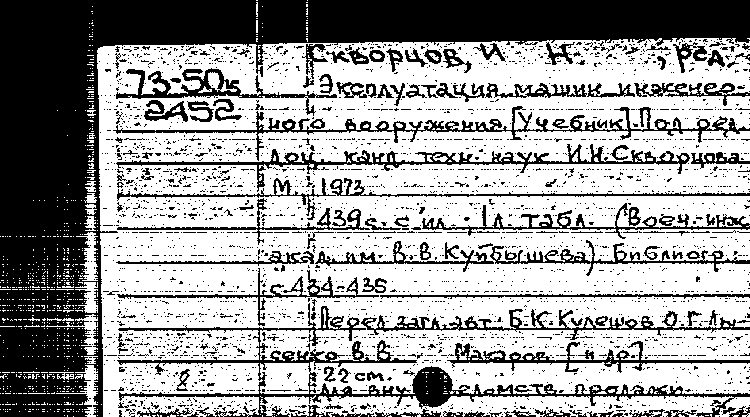 Скворцов, И Н. , ред.
73-50
2452
Эксплуатация машин инженер-
ного вооружения. [Учебник]. Под ред.
доц. канд. техн. наук И.Н. Скворцова
М., 1973.
439 с. с ил.; 1 л. табл. (Воен.-инж.
акад. им. В. В. Куйбышева). Библиогр.:
с. 434-435.
Перед загл. авт.: Б.К. Кулешов, О.Г. Лы-
сенко, В.В. Макаров [и др.].
22 см.
8
Для вну едомств. продажи.